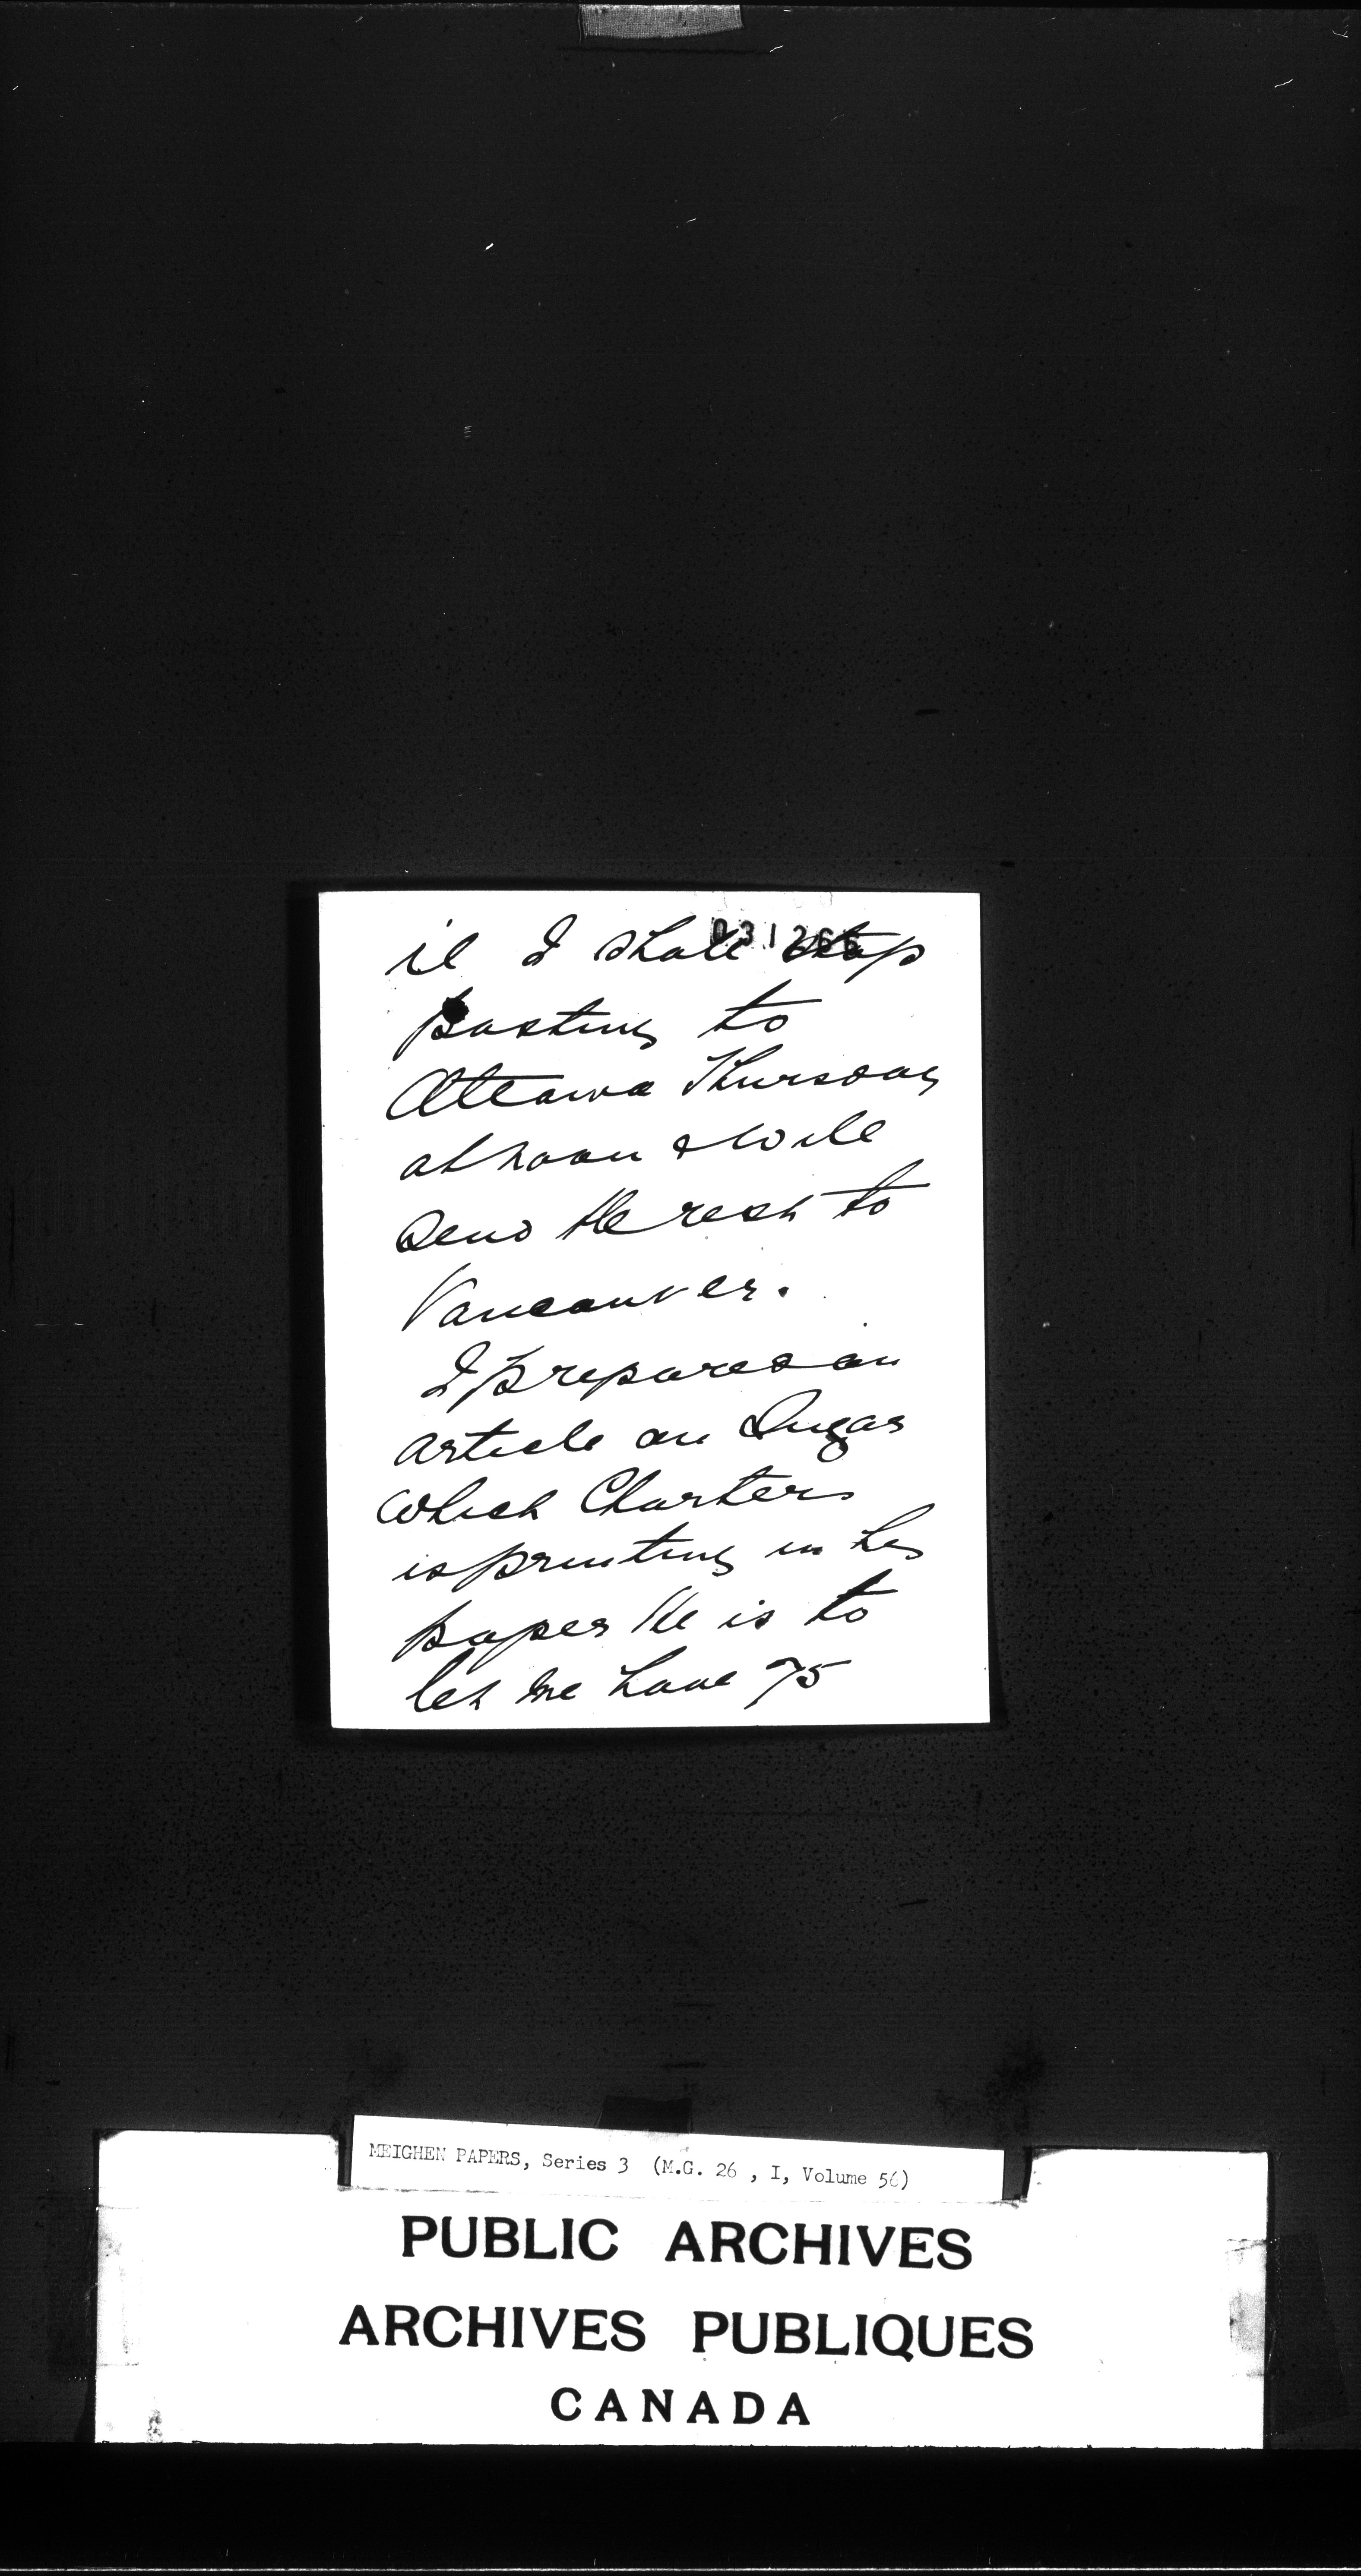 031266
it I shall stop
posting to
Ottawa Thursday
at noon & will
send the rest to
Vancouver.
I prepared an
article on Sugar
which Charters
is printing in his
paper He is to
let me have 75
MEIGHEN PAPERS, Series 3 (M.G. 26 , I, Volume 56)
PUBLIC ARCHIVES
ARCHIVES PUBLIQUES
CANADA